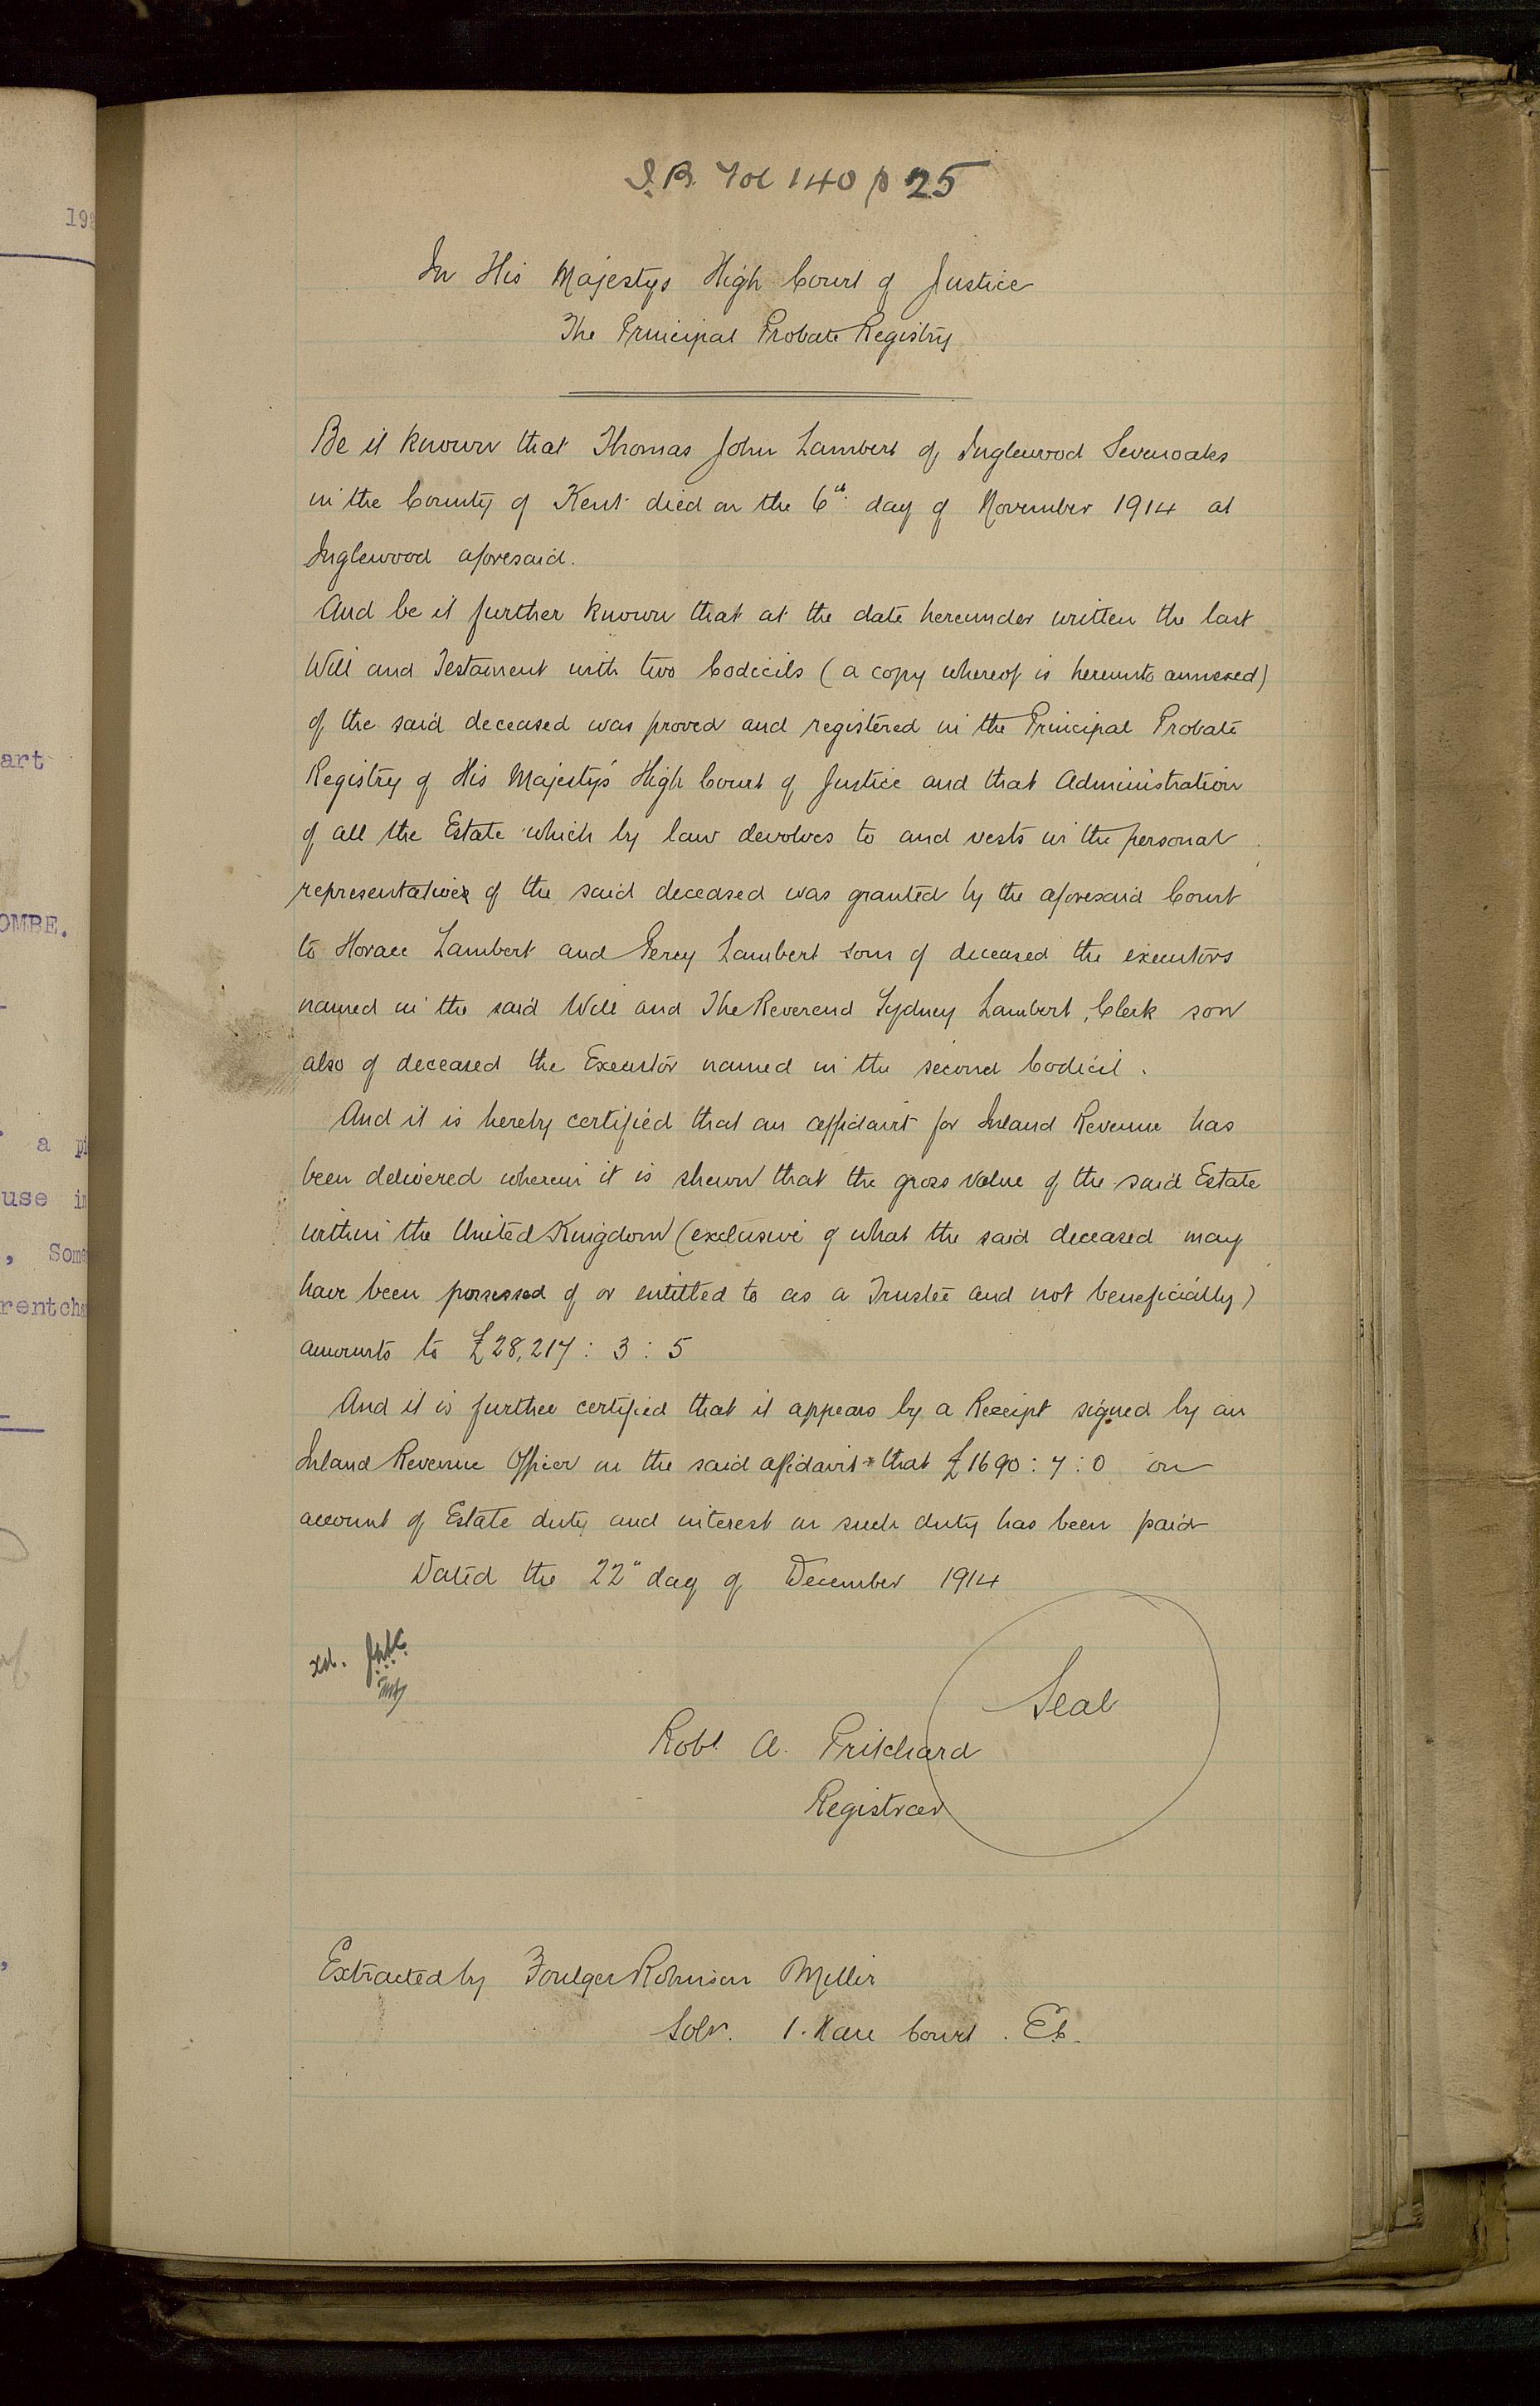 S.B. Fol 140 p 25
In His Majestys High Court of Justice
The Principal Probate Registry
Be it known that Thomas John Lambert of Inglewood Sevenoaks
in the County of Kent died on the 6th day of November 1914 at
Inglewood aforesaid.
And be it further known that at the date hereunder written the last
Will and Testament with two Codicils (a copy whereof is hereunto annexed)
of the said deceased was proved and registered in the Principal Probate
Registry of His Majesty's High Court of Justice and that Administration
of all the Estate which by law devolves to and vests in the personal
representatives of the said deceased was granted by the aforesaid Court
to Horace Lambert and Percy Lambert sons of deceased the executors
named in the said Will and The Reverend Sydney Lambert, Clerk son
also of deceased the Executor named in the second Codicil.
And it is hereby certified that an affidavit for Inland Revenue has
been delivered wherein it is shewn that the gross value of the said Estate
within the United Kingdom (exclusive of what the said deceased may
have been possessed of or entitled to as a Trustee and not beneficially)
amounts to £28,217 : 3 : 5
And it is further certified that it appears by a Receipt signed by an
Inland Revenue Officer on the said affidavit that £1690 : 7 : 0 on
account of Estate duty and interest on such duty has been paid
Dated the 22" day of December 1914
Seal
Robt. A. Pritchard
Registrar
Extracted by Foulger Robinson Miller
Solr. 1. Hare Court. EC.
198
art
OMBE.
a pi
use in
, Some
rentcha